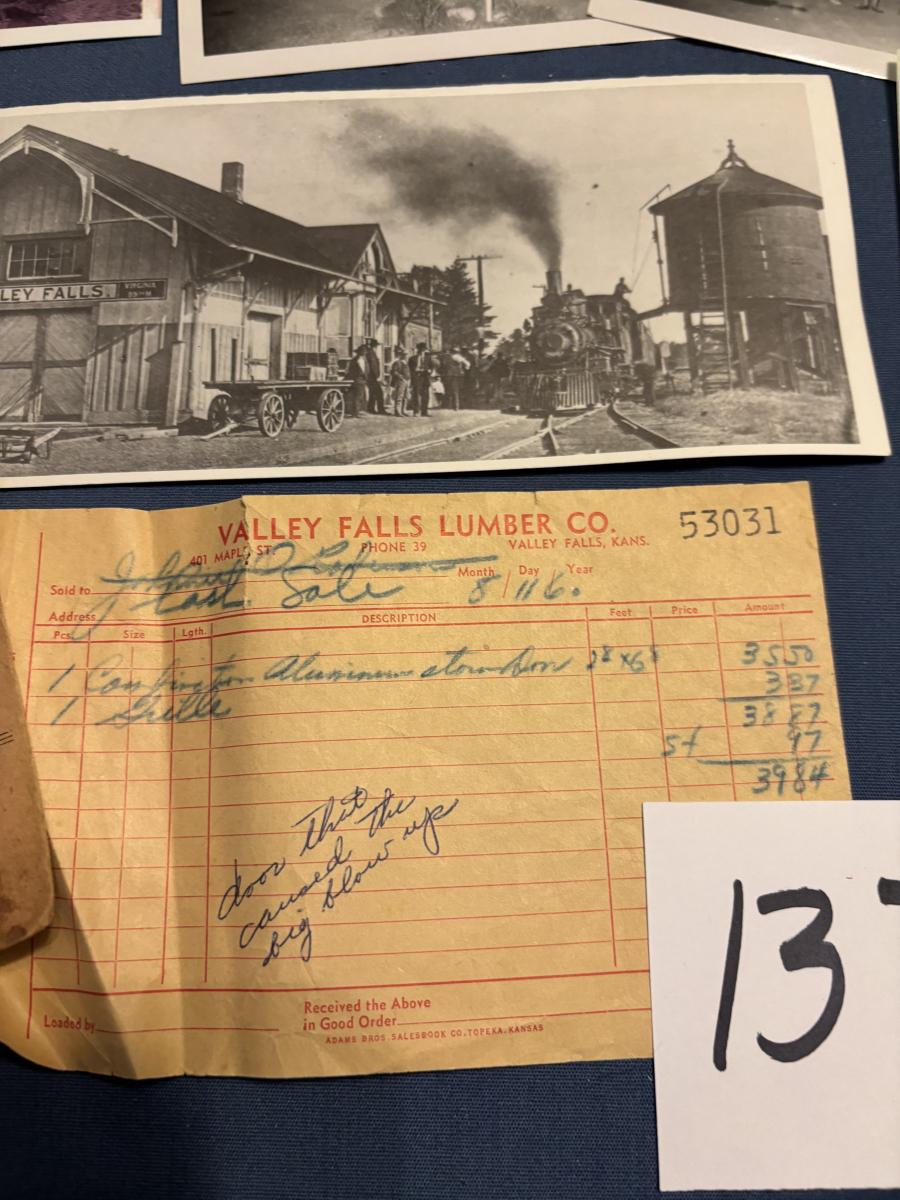 LEY FALLS.
VIRGINIA
VALLEY FALLS LUMBER CO. 53031
401 MAPLE ST. PHONE 39 VALLEY FALLS, KANS.
Sold to
Month Day Year
Cash Sale 8/11/6
Address
Pcs. Size Lgth. DESCRIPTION Feet Price Amount
1 Combination Aluminum storm Door 2⁸ x 6⁸ 3550
1 Grille 337
3887
st 97
3984
door that
caused the
big blow up
Received the Above
Loaded by in Good Order
ADAMS BROS. SALESBOOK CO. TOPEKA, KANSAS
13